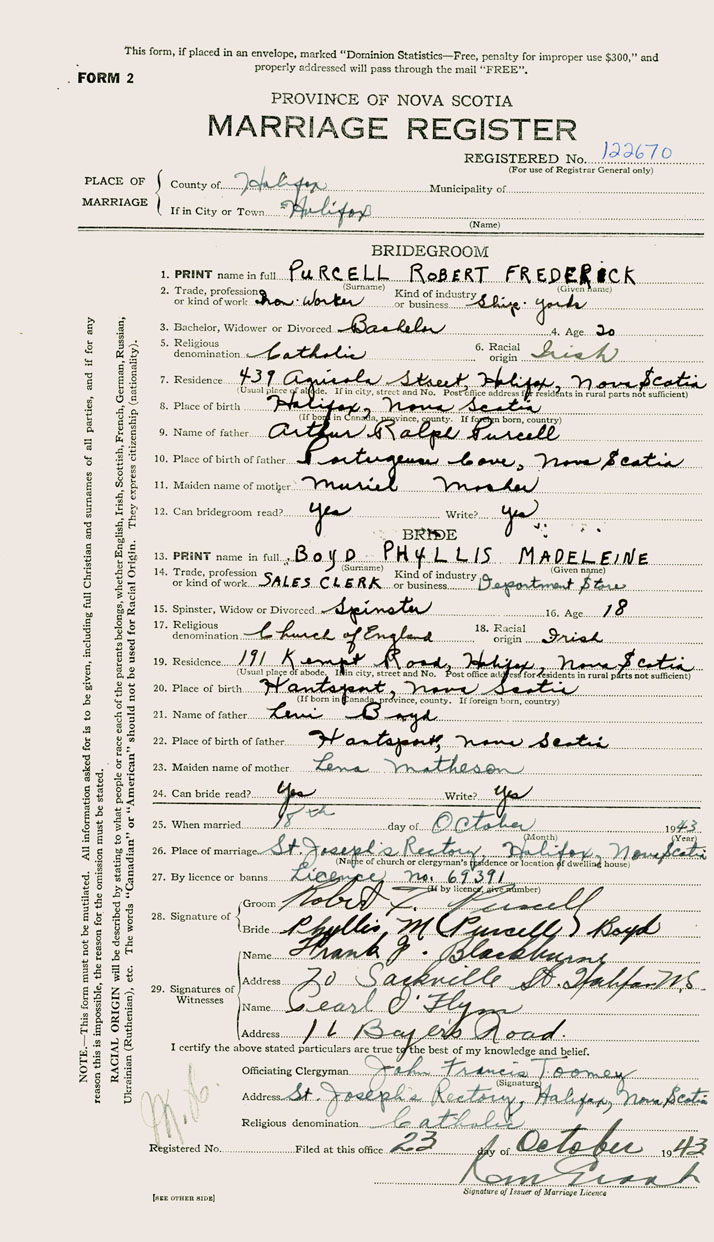 This form, if placed in an envelope, marked "Dominion Statistics—Free, penalty for improper use $300," and
properly addressed will pass through the mail "FREE".
FORM 2
PROVINCE OF NOVA SCOTIA
MARRIAGE REGISTER
REGISTERED No. 122670
(For use of Registrar General only)
PLACE OF MARRIAGE
County of Halifax Municipality of
If in City or Town Halifax
(Name)
BRIDEGROOM
1. PRINT name in full PURCELL ROBERT FREDERICK
(Surname) (Given name)
2. Trade, profession or kind of work Iron-Worker Kind of industry or business Ship-yards
3. Bachelor, Widower or Divorced Bachelor 4. Age 20
5. Religious denomination Catholic 6. Racial origin Irish
7. Residence 439 Agricola Street, Halifax, Nova Scotia
(Usual place of abode. If in city, street and No. Post office address for residents in rural parts not sufficient)
8. Place of birth Halifax, Nova Scotia
(If born in Canada, province, county. If foreign born, country)
9. Name of father Arthur Ralph Purcell
10. Place of birth of father Portuguese Cove, Nova Scotia
11. Maiden name of mother Muriel Mosher
12. Can bridegroom read? yes Write? yes
BRIDE
13. PRINT name in full BOYD PHYLLIS MADELEINE
(Surname) (Given name)
14. Trade, profession or kind of work SALES CLERK Kind of industry or business Department Store
15. Spinster, Widow or Divorced Spinster 16. Age 18
17. Religious denomination Church of England 18. Racial origin Irish
19. Residence 191 Kempt Road, Halifax, Nova Scotia
(Usual place of abode. If in city, street and No. Post office address for residents in rural parts not sufficient)
20. Place of birth Hantsport, Nova Scotia
(If born in Canada, province, county. If foreign born, country)
21. Name of father Levi Boyd
22. Place of birth of father Hantsport, Nova Scotia
23. Maiden name of mother Lena Matheson
24. Can bride read? Yes Write? Yes
25. When married 18th day of October 1943
(Month) (Year)
26. Place of marriage St. Joseph's Rectory, Halifax, Nova Scotia
(Name of church or clergyman's residence or location of dwelling house)
27. By licence or banns Licence no. 69391
(If by licence, give number)
28. Signature of
Groom Robert F. Purcell
Bride Phyllis M (Purcell) Boyd
29. Signatures of Witnesses
Name Frank J. Blackburne
Address 20 Sackville St. Halifax N.S.
Name Pearl O'Flynn
Address 16 Bayers Road.
I certify the above stated particulars are true to the best of my knowledge and belief.
Officiating Clergyman John Francis Toomey
(Signature)
Address St. Joseph's Rectory, Halifax, Nova Scotia
Religious denomination Catholic
Registered No. Filed at this office 23 day of October 1943
Signature of Issuer of Marriage Licence
[SEE OTHER SIDE]
NOTE.—This form must not be mutilated. All information asked for is to be given, including full Christian and surnames of all parties, and if for any
reason this is impossible, the reason for the omission must be stated.
RACIAL ORIGIN will be described by stating to what people or race each of the parents belongs, whether English, Irish, Scottish, French, German, Russian,
Ukrainian (Ruthenian), etc. The words "Canadian" or "American" should not be used for Racial Origin. They express citizenship (nationality).